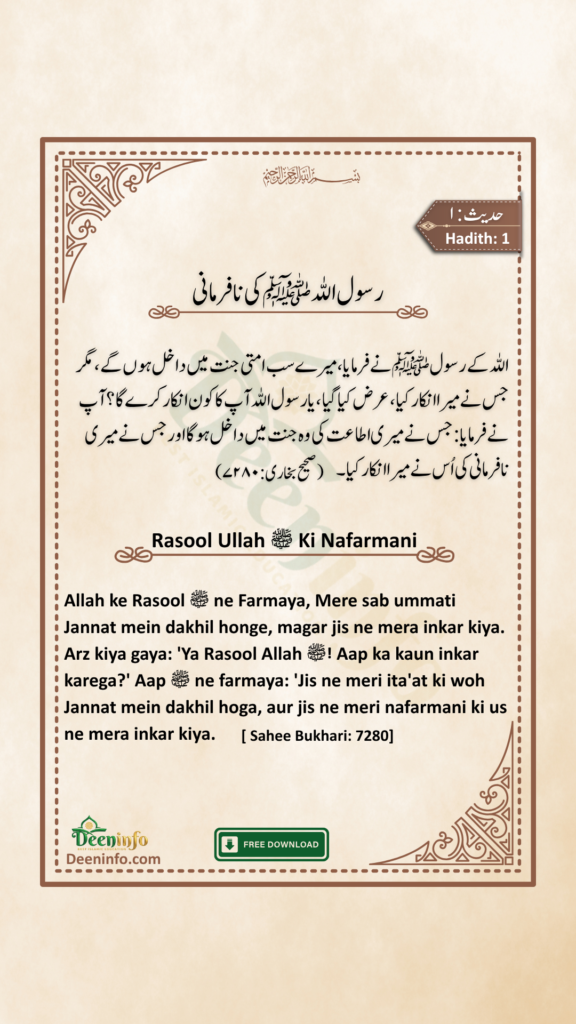 بسم الله الرحمن الرحيم
حدیث: ۱
Hadith: 1
رسول اللہ ﷺ کی نافرمانی
اللہ کے رسول ﷺ نے فرمایا، میرے سب امتی جنت میں داخل ہوں گے، مگر
جس نے میرا انکار کیا، عرض کیا گیا، یا رسول اللہ آپ کا کون انکار کرے گا؟ آپ
نے فرمایا: جس نے میری اطاعت کی وہ جنت میں داخل ہو گا اور جس نے میری
نافرمانی کی اُس نے میرا انکار کیا۔ (صحیح بخاری: ۷۲۸۰)
Rasool Ullah ﷺ Ki Nafarmani
Allah ke Rasool ﷺ ne Farmaya, Mere sab ummati
Jannat mein dakhil honge, magar jis ne mera inkar kiya.
Arz kiya gaya: 'Ya Rasool Allah ﷺ! Aap ka kaun inkar
karega?' Aap ﷺ ne farmaya: 'Jis ne meri ita'at ki woh
Jannat mein dakhil hoga, aur jis ne meri nafarmani ki us
ne mera inkar kiya. [ Sahee Bukhari: 7280]
Deeninfo
Deeninfo.com
FREE DOWNLOAD